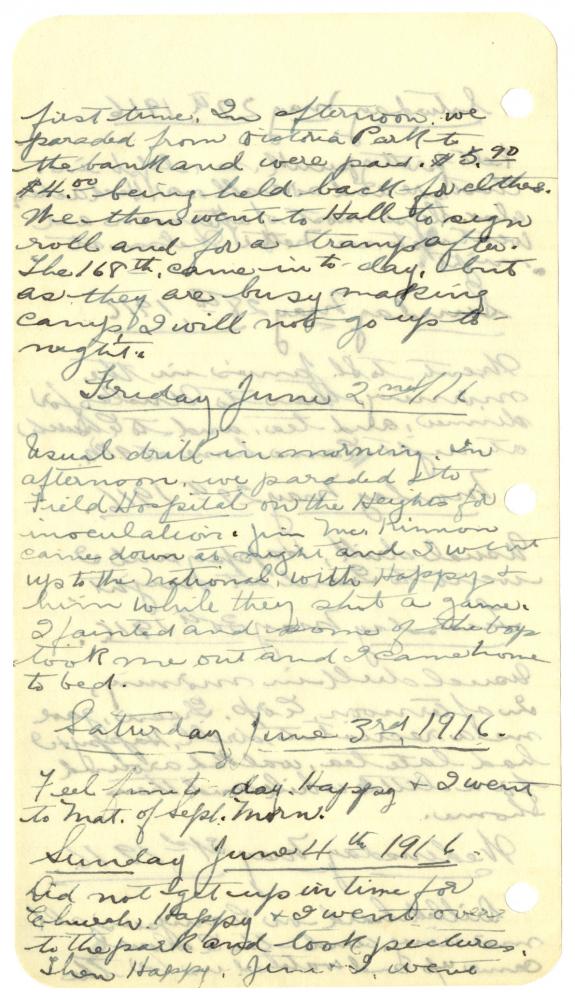 first time. In afternoon. we
paraded from Victoria Park to
the bank and were paid. $5.90
$4.00 being held back for clothes.
We then went to Hall to sign
roll and for a tramp after.
The 168th. came in to-day, but
as they are busy making
camp, I will not go up to
night.
Friday June 2nd/16
Usual drill in morning. In
afternoon, we paraded to
Field Hospital on the Heights for
inoculation. Jim McKinnon
came down at night and I went
up to the National, with Happy &
him while they shot a game.
I fainted and some of the boys
took me out and I came home
to bed.
Saturday June 3rd, 1916.
Feel fine to day. Happy & I went
to Mat. of Sept. Morn.
Sunday June 4th 1916.
Did not get up in time for
Church. Happy & I went over
to the park and took pictures.
Then Happy, Jim & I, went